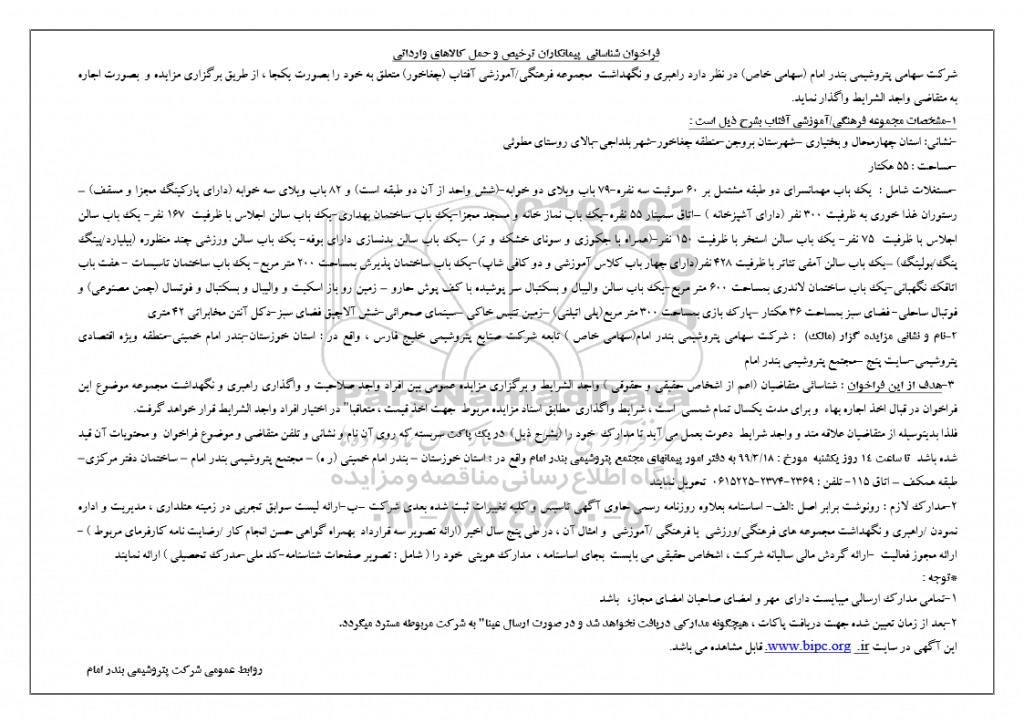 فراخوان شناسائی پیمانکاران ترخیص و حمل کالاهای وارداتی
شرکت سهامی پتروشیمی بندر امام (سهامی خاص) در نظر دارد راهبری و نگهداشت مجموعه فرهنگی/آموزشی آفتاب (چغاخور) متعلق به خود را بصورت یکجا ، از طریق برگزاری مزایده و بصورت اجاره
به متقاضی واجد الشرایط واگذار نماید.
۱-مشخصات مجموعه فرهنگی/آموزشی آفتاب بشرح ذیل است :
-نشانی: استان چهارمحال و بختیاری –شهرستان بروجن-منطقه چغاخور-شهر بلداجی-بالای روستای مطوئی
-مساحت : ۵۵ هکتار
-مستغلات شامل : یک باب مهمانسرای دو طبقه مشتمل بر ۶۰ سوئیت سه نفره-۷۹ باب ویلای دو خوابه-(شش واحد از آن دو طبقه است) و ۸۲ باب ویلای سه خوابه (دارای پارکینگ مجزا و مسقف) –
رستوران غذا خوری به ظرفیت ۳۰۰ نفر (دارای آشپزخانه ) –اتاق سمینار ۵۵ نفره-یک باب نماز خانه و مسجد مجزا-یک باب ساختمان بهداری-یک باب سالن اجلاس با ظرفیت ۱۶۷ نفر- یک باب سالن
اجلاس با ظرفیت ۷۵ نفر- یک باب سالن استخر با ظرفیت ۱۵۰ نفر-(همراه با جکوزی و سونای خشک و تر) –یک باب سالن بدنسازی دارای بوفه- یک باب سالن ورزشی چند منظوره (بیلیارد/پینگ
پنگ/بولینگ) –یک باب سالن آمفی تئاتر با ظرفیت ۴۲۸ نفر(دارای چهار باب کلاس آموزشی و دو کافی شاپ)-یک باب ساختمان پذیرش بمساحت ۲۰۰ متر مربع- یک باب ساختمان تاسیسات – هفت باب
اتاقک نگهبانی-یک باب ساختمان لاندری بمساحت ۶۰۰ متر مربع-یک باب سالن والیبال و بسکتبال سر پوشیده با کف پوش حارو – زمین رو باز اسکیت و والیبال و بسکتبال و فوتسال (چمن مصنوعی) و
فوتبال ساحلی- فضای سبز بمساحت ۳۶ هکتار –پارک بازی بمساحت ۳۰۰ متر مربع(پلی اتیلنی) –زمین تنیس خاکی –سینمای صحرائی-شش آلاچیق فضای سبز-دکل آنتن مخابراتی ۴۲ متری
۲-نام و نشانی مزایده گزار (مالک) : شرکت سهامی پتروشیمی بندر امام(سهامی خاص ) تابعه شرکت صنایع پتروشیمی خلیج فارس ، واقع در : استان خوزستان-بندر امام خمینی-منطقه ویژه اقتصادی
پتروشیمی-سایت پنج –مجتمع پتروشیمی بندر امام
۳-هدف از این فراخوان : شناسائی متقاضیان (اعم از اشخاص حقیقی و حقوقی ) واجد الشرایط و برگزاری مزایده عمومی بین افراد واجد صلاحیت و واگذاری راهبری و نگهداشت مجموعه موضوع این
فراخوان در قبال اخذ اجاره بهاء و برای مدت یکسال تمام شمسی است ، شرایط واگذاری مطابق اسناد مزایده مربوط جهت اخذ قیمت ، متعاقبا" در اختیار افراد واجد الشرایط قرار خواهد گرفت.
فلذا بدینوسیله از متقاضیان علاقه مند و واجد شرایط دعوت بعمل می آید تا مدارک خود را (بشرح ذیل) در یک پاکت سربسته که روی آن نام و نشانی و تلفن متقاضی و موضوع فراخوان و محتویات آن قید
شده باشد تا ساعت ۱۴ روز یکشنبه مورخ : ۹۹/۳/۱۸ به دفتر امور پیمانهای مجتمع پتروشیمی بندر امام واقع در : استان خوزستان – بندر امام خمینی (ره ) – مجتمع پتروشیمی بندر امام – ساختمان دفتر مرکزی-
طبقه همکف – اتاق ۱۱۵- تلفن : ۲۳۶۹-۲۳۷۴-۰۶۱۵۲۲۵ تحویل نمایند
۲-مدارک لازم : رونوشت برابر اصل :الف- اساسنامه بعلاوه روزنامه رسمی حاوی آگهی تاسیس و کلیه تغییرات ثبت شده بعدی شرکت –ب-ارائه لیست سوابق تجربی در زمینه هتلداری ، مدیریت و اداره
نمودن /راهبری و نگهداشت مجموعه های فرهنگی/ورزشی یا فرهنگی /آموزشی و امثال آن ، در طی پنج سال اخیر (ارائه تصویر سه قرارداد بهمراه گواهی حسن انجام کار /رضایت نامه کارفرمای مربوط ) –
ارائه مجوز فعالیت –ارائه گردش مالی سالیانه شرکت ، اشخاص حقیقی می بایست بجای اساسنامه ، مدارک هویتی خود را ( شامل : تصویر صفحات شناسنامه-کد ملی-مدرک تحصیلی ) ارائه نمایند
*توجه :
۱-تمامی مدارک ارسالی میبایست دارای مهر و امضای صاحبان امضای مجاز، باشد
۲-بعد از زمان تعیین شده جهت دریافت پاکات ، هیچگونه مدارکی دریافت نخواهد شد و در صورت ارسال عینا" به شرکت مربوطه مسترد میگردد.
این آگهی در سایت www.bipc.org .ir قابل مشاهده می باشد.
روابط عمومی شرکت پتروشیمی بندر امام
ParsNamadData
پایگاه اطلاع رسانی مناقصه و مزایده
۰۲۱-۸۸۳۴۹۶۷۰-۵